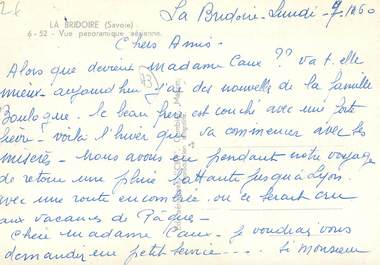 26
La Bridoire - Lundi - 9. 1960
LA BRIDOIRE (Savoie)
6-52 - Vue panoramique aérienne.
Chers Amis -
Alors que devient madame Caux ?? va t. elle
mieux - aujourd'hui j'ai des nouvelles de la famille
Boulogne. le beau frère est couché avec une forte
fièvre - voilà l'hiver qui va commencer avec ses
misères - nous avons eu pendant notre voyage
de retour une pluie battante jusqu'à Lyon.
avec une route encombrée. on ce serait cru
aux vacances de Pâques -
Chère madame Caux - je voudrais vous
demander un petit service --- si monsieur